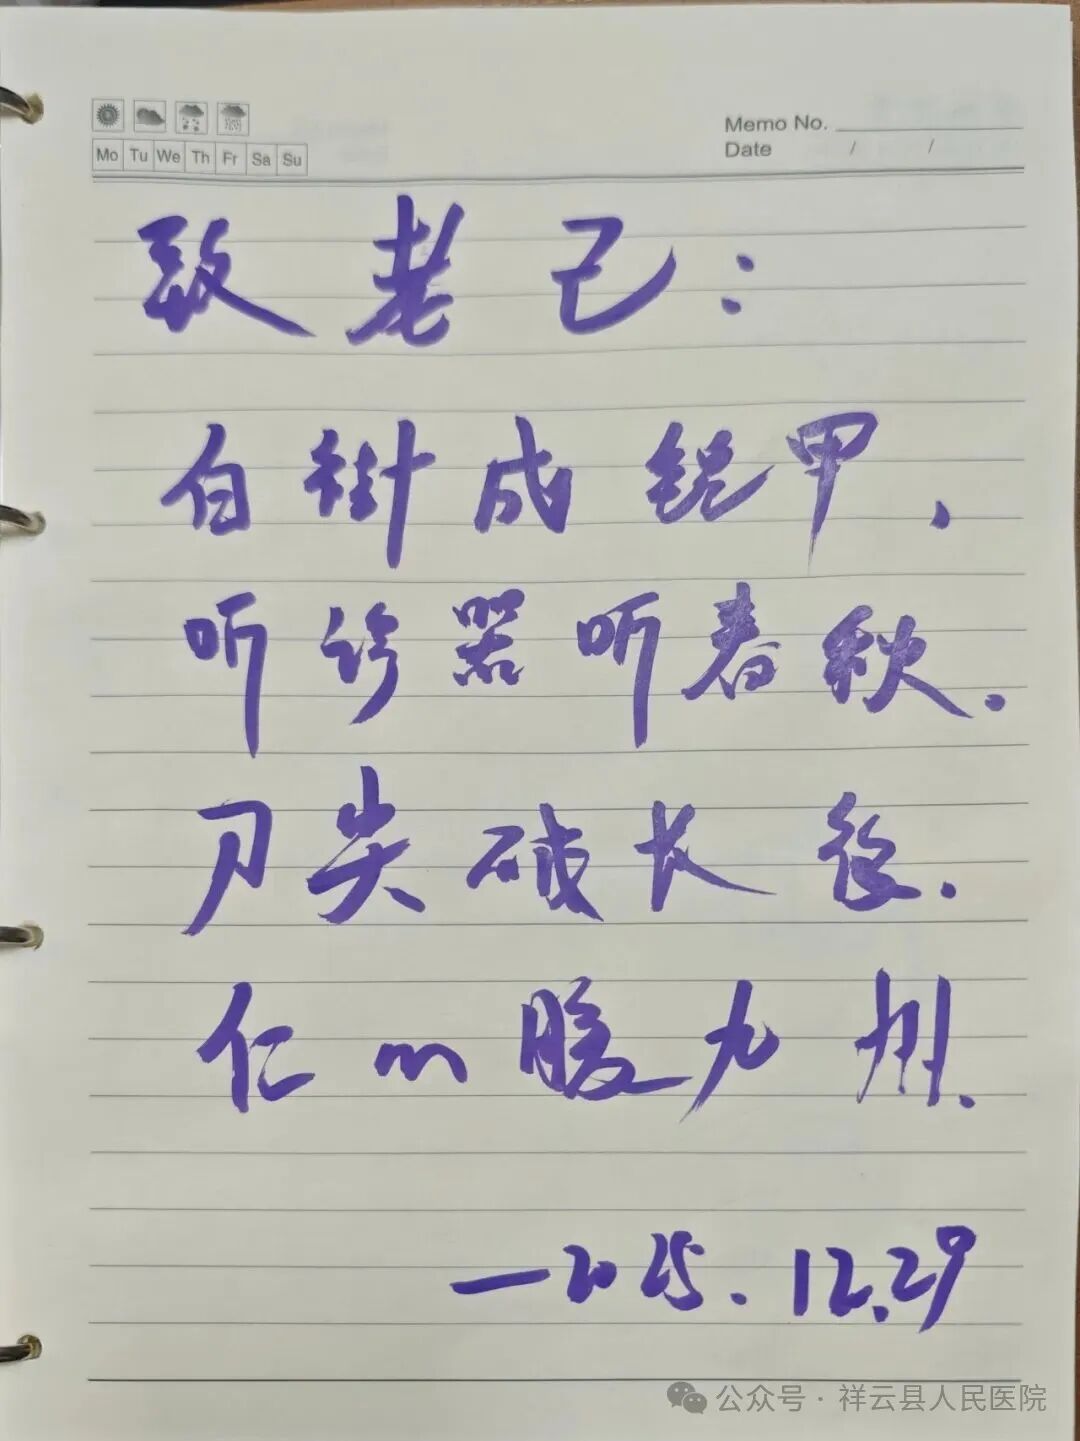 Memo No.
Mo Tu We Th Fr Sa Su
Date / /
致老己：
白褂成铠甲，
听诊器听春秋.
刀尖破长夜.
仁心暖九州.
—2025.12.29
公众号·祥云县人民医院